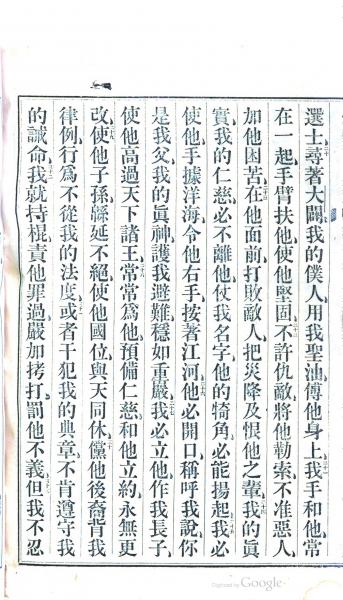 選士尋著大闢我的僕人用我聖油傅他身上我手和他常
在一起手臂扶他使他堅固不許仇敵將他勒索不准惡人
加他困苦在他面前打敗敵人把災降及恨他之輩我的眞
實我的仁慈必不離他仗我名字他的犄角必能揚起我必
使他手據洋海令他右手按著江河他必開口稱呼我說你
是我父我的眞神護我避難穩如重巖我必立他作我長子
使他高過天下諸王常常爲他預備仁慈和他立約永無更
改使他子孫緜延不絕使他國位與天同休儻他後裔背我
律例行爲不從我的法度或者干犯我的典章不肯遵守我
的誡命我就持棍責他罪過嚴加拷打罰他不義但我不忍
Digitized by Google